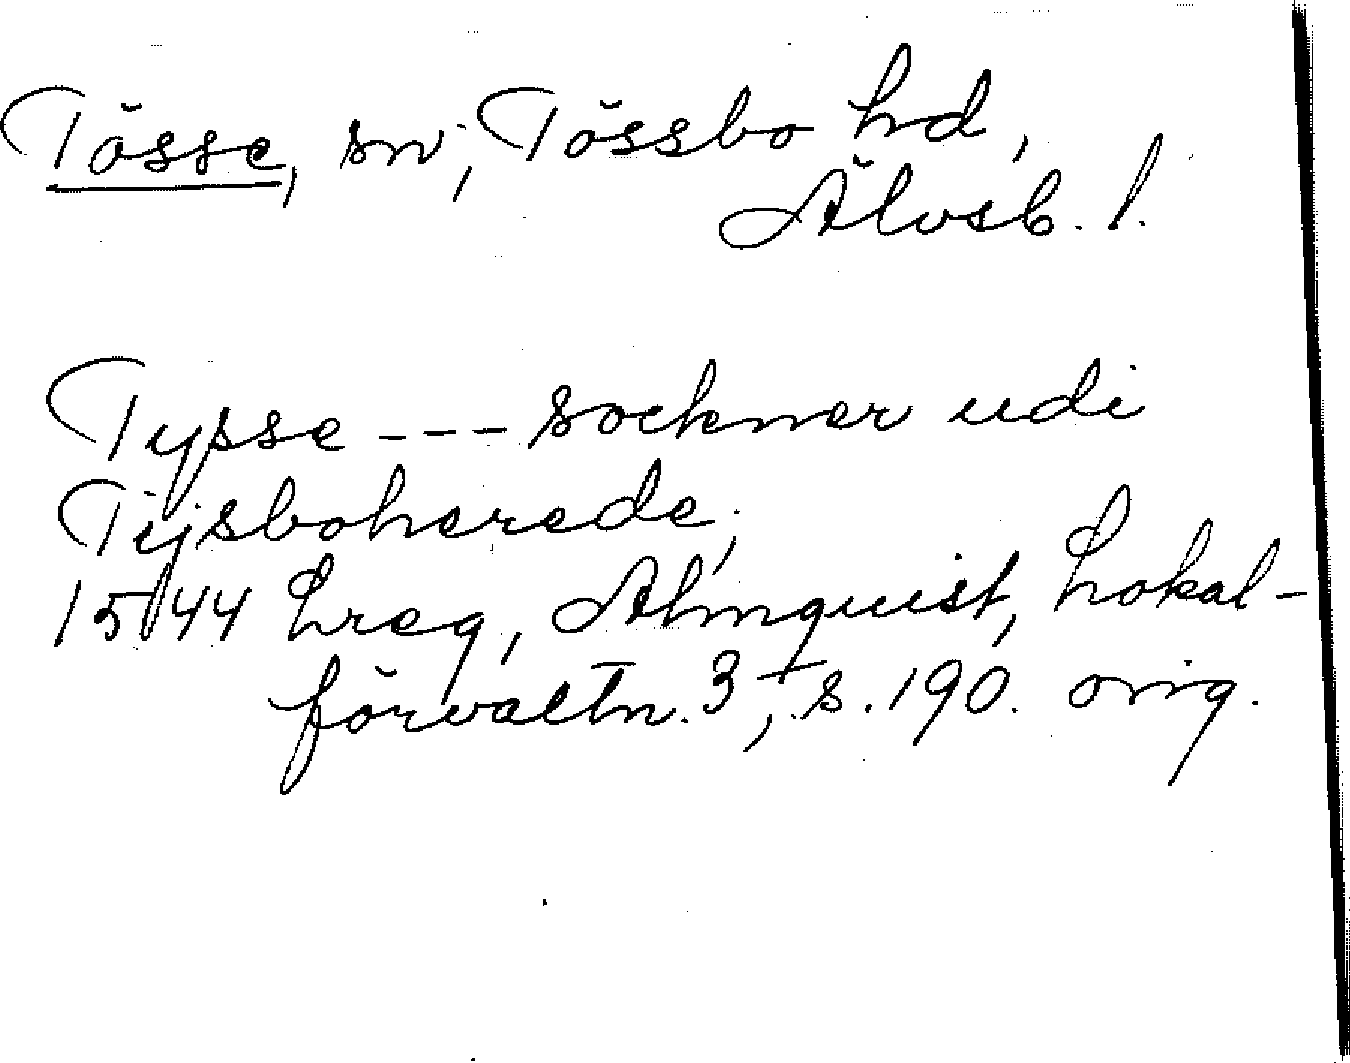 Tösse, sn, Tössbo hd,
Älvsb. l.
Tysse --- sockner udi
Tijsboherede,
1544 Lreg, Almquist, Lokal-
förvaltn. 3, s. 190. orig.